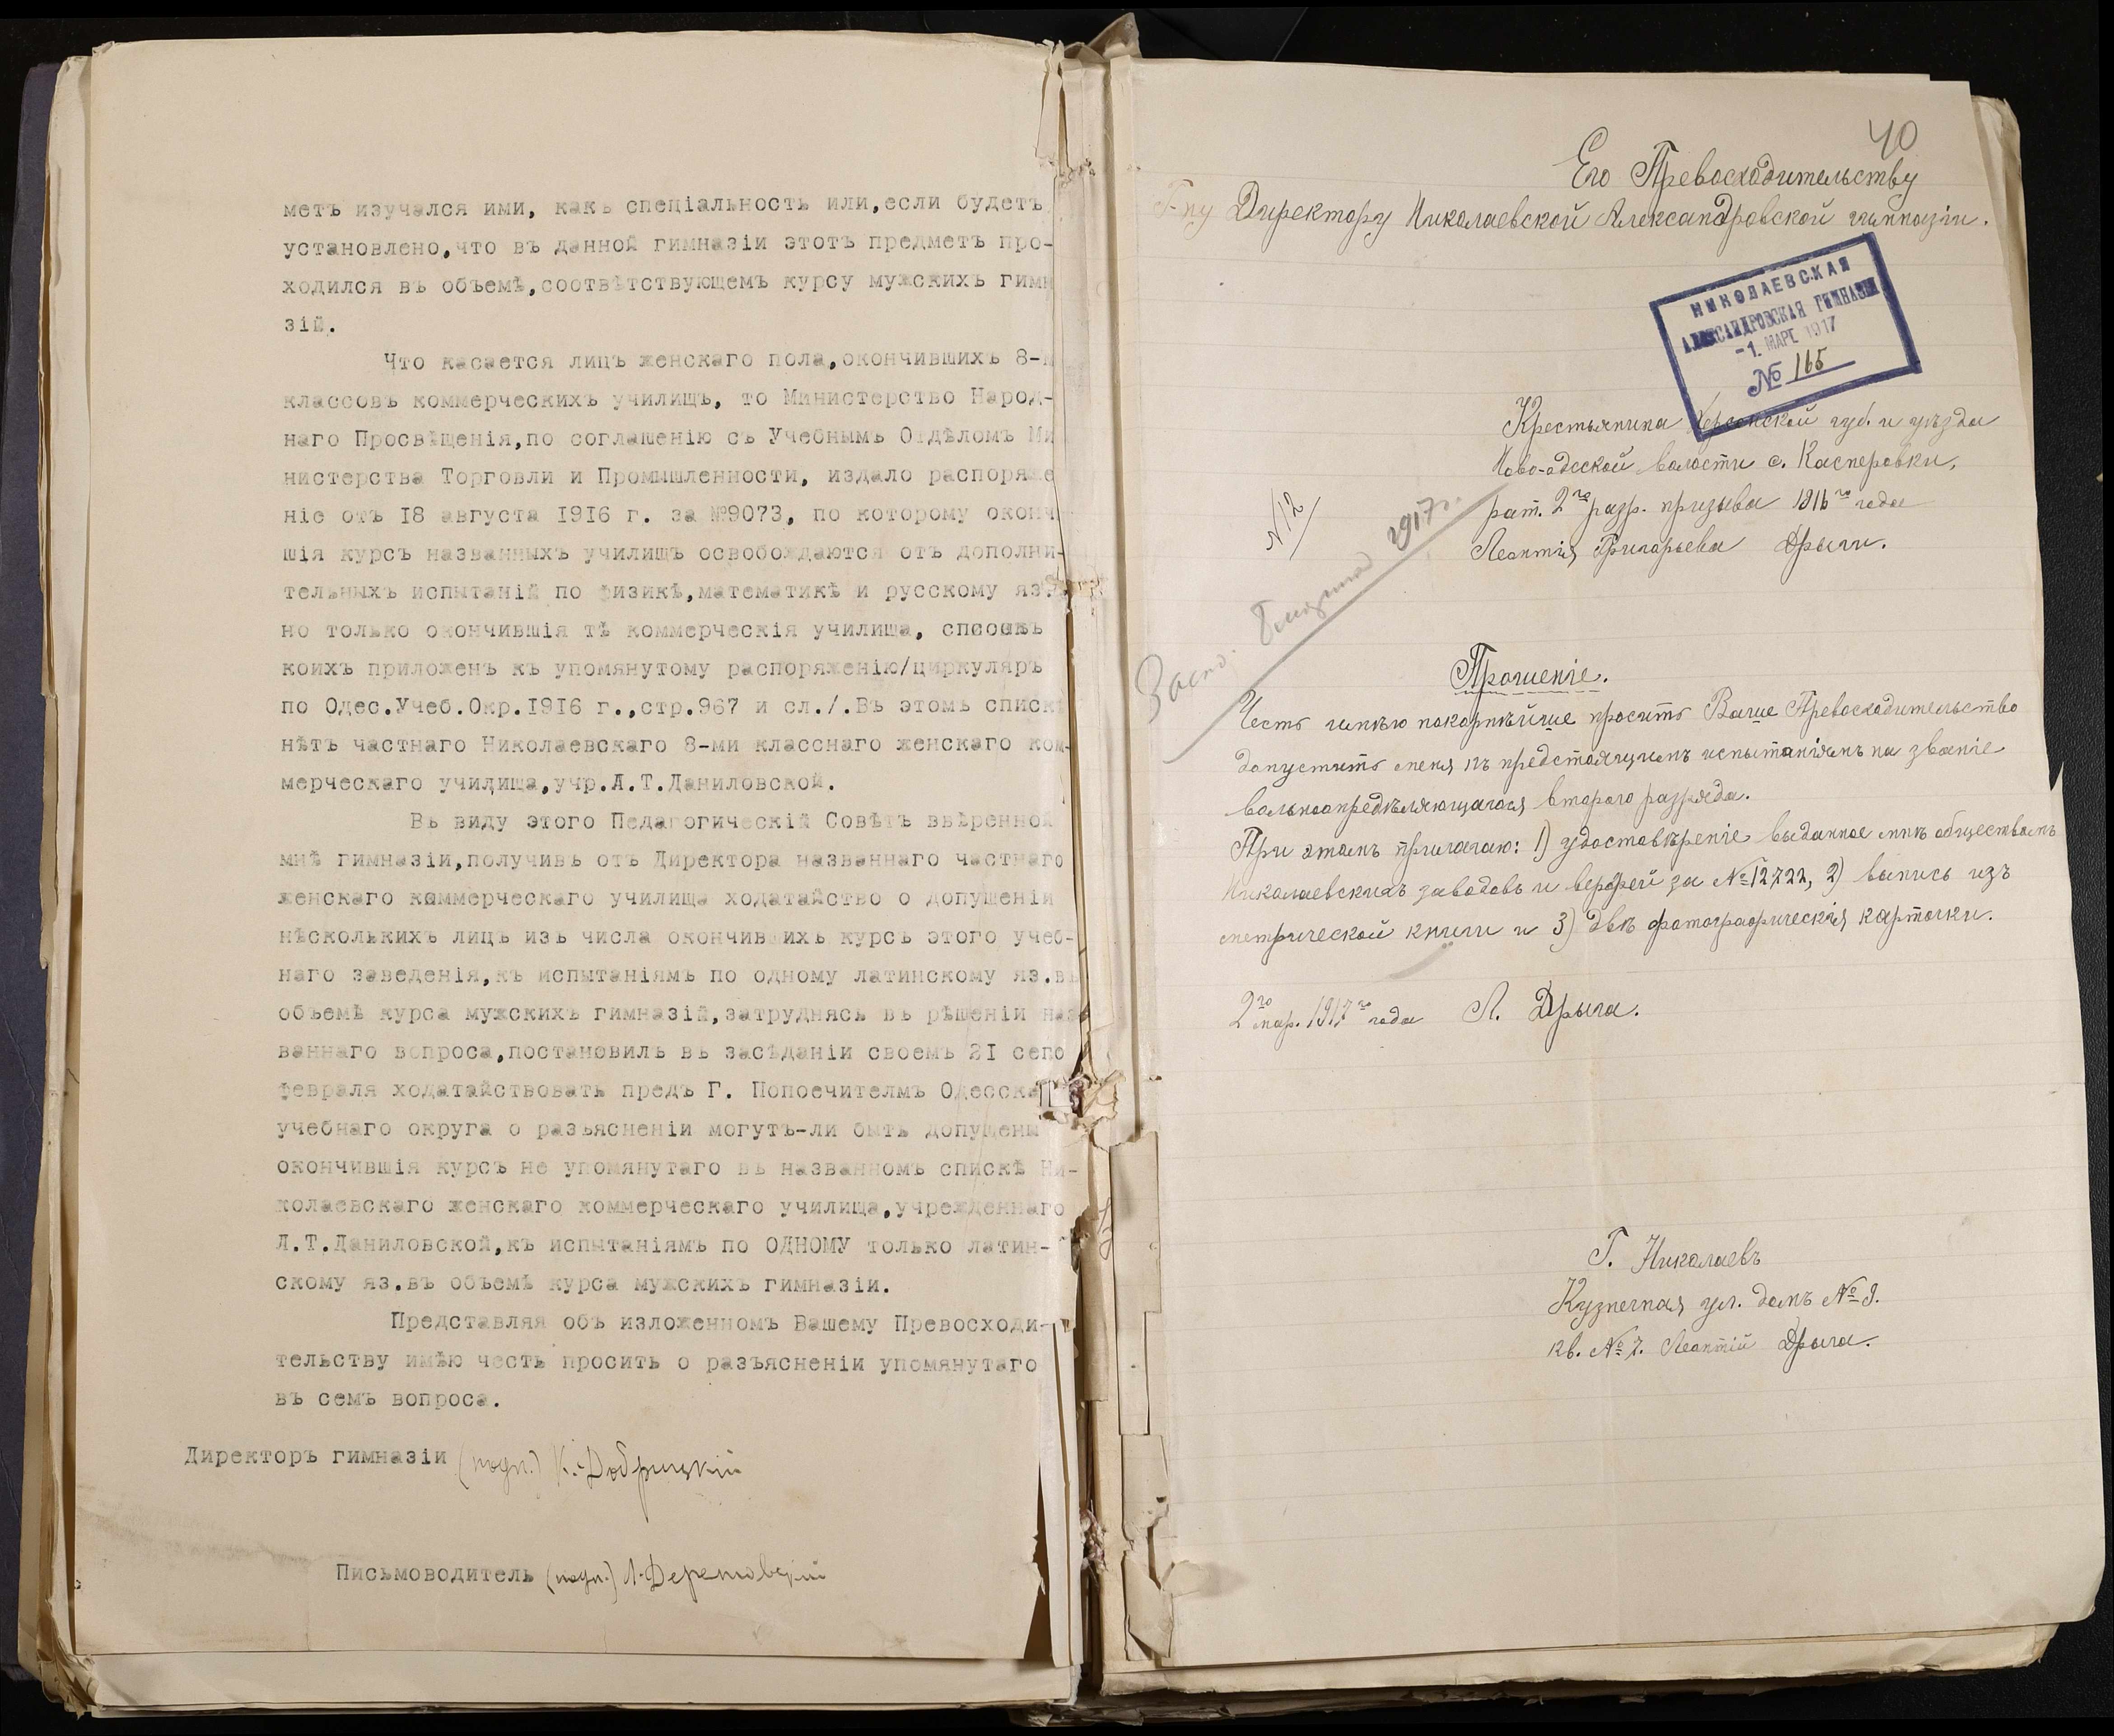 метъ изучался ими, какъ спеціальность или,если будетъ
установлено,что въ данной гимназіи этотъ предметъ про-
ходился въ объемѣ,соотвѣтствующемъ курсу мужскихъ гимн
зій.
Что касается лицъ женскаго пола,окончившихъ 8-
классовъ коммерческихъ училищъ, то Министерство Народ-
наго Просвѣщенія,по соглашенію съ Учебнымъ Отдѣломъ Ми
нистерства Торговли и Промышленности, издало распоряже
ніе отъ 18 августа 1916 г. за №9073, по которому оконч
шія курсъ названныхъ училищъ освобождаются отъ дополни-
тельныхъ испытаній по физикѣ,математикѣ и русскому яз.
но только окончившія тѣ коммерческія училища, списокъ
коихъ приложенъ къ упомянутому распоряженію/циркуляръ
по Одес.Учеб.Окр.1916 г.,стр.967 и сл./.Въ этомъ спискѣ
нѣтъ частнаго Николаевскаго 8-ми класснаго женскаго ком-
мерческаго училища,учр.А.Т.Даниловской.
Въ виду этого Педагогическій Совѣтъ ввѣренной
мнѣ гимназіи,получивъ отъ Директора названнаго частнаго
женскаго коммерческаго училища ходатайство о допущеніи
нѣсколькихъ лицъ изъ числа окончившихъ курсъ этого учеб-
наго заведенія,къ испытаніямъ по одному латинскому яз.въ
объемѣ курса мужскихъ гимназій,затруднясь въ рѣшеніи наз
ваннаго вопроса,постановилъ въ засѣданіи своемъ 21 сего
февраля ходатайствовать предъ Г. Попоечителмъ Одесска
учебнаго округа о разъясненіи могутъ-ли быть допущены
окончившія курсъ не упомянутаго въ названномъ спискѣ Ни-
колаевскаго женскаго коммерческаго училища,учрежденнаго
Л.Т.Даниловской,къ испытаніямъ по ОДНОМУ только латин-
скому яз.въ объемѣ курса мужскихъ гимназіи.
Представляя объ изложенномъ Вашему Превосходи-
тельству имѣю честь просить о разъясненіи упомянутаго
въ семъ вопроса.
Директоръ гимназіи (подп.) К. Добрицкій
Письмоводитель (подп.)
40
Его Превосходительству
Г-ну Директору Николаевской Александровской гимназіи.
НИКОЛАЕВСКАЯ
АЛЕКСАНДРОВСКАЯ ГИМНАЗІЯ
-1. МАРТ 1917
№ 165
Крестьянина Херсонской губ. и уѣзда
Ново-одесской волости с. Касперовки,
рат. 2го разр. призыва 1916го года
Леонтія Григорьева Дрыги.
N 12
1917г.
Прошеніе.
Честь имѣю покорнѣйше просить Ваше Превосходительство
допустить меня къ предстоящимъ испытаніямъ на званіе
вольноопредѣляющагося второго разряда.
При этомъ прилагаю: 1) удостовѣреніе выданное мнѣ обществомъ
Николаевскихъ заводовъ и верфей за №12722, 2) выпись изъ
метрической книги и 3) двѣ фотографическія карточки.
2го мар. 1917го года Л. Дрыга.
Г. Николаевъ
Кузнечная ул. домъ № 9.
кв. № 7. Леонтій Дрыга.